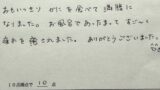 おもいっきり かにを食べて満腹に
なりました。お風呂であったまって すごーく
疲れを癒されました。ありがとうございました。
10点満点で 10 点